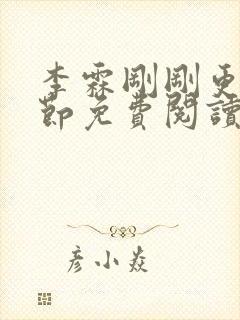 李霖剛剛更
節免費閱讀
彥小焱